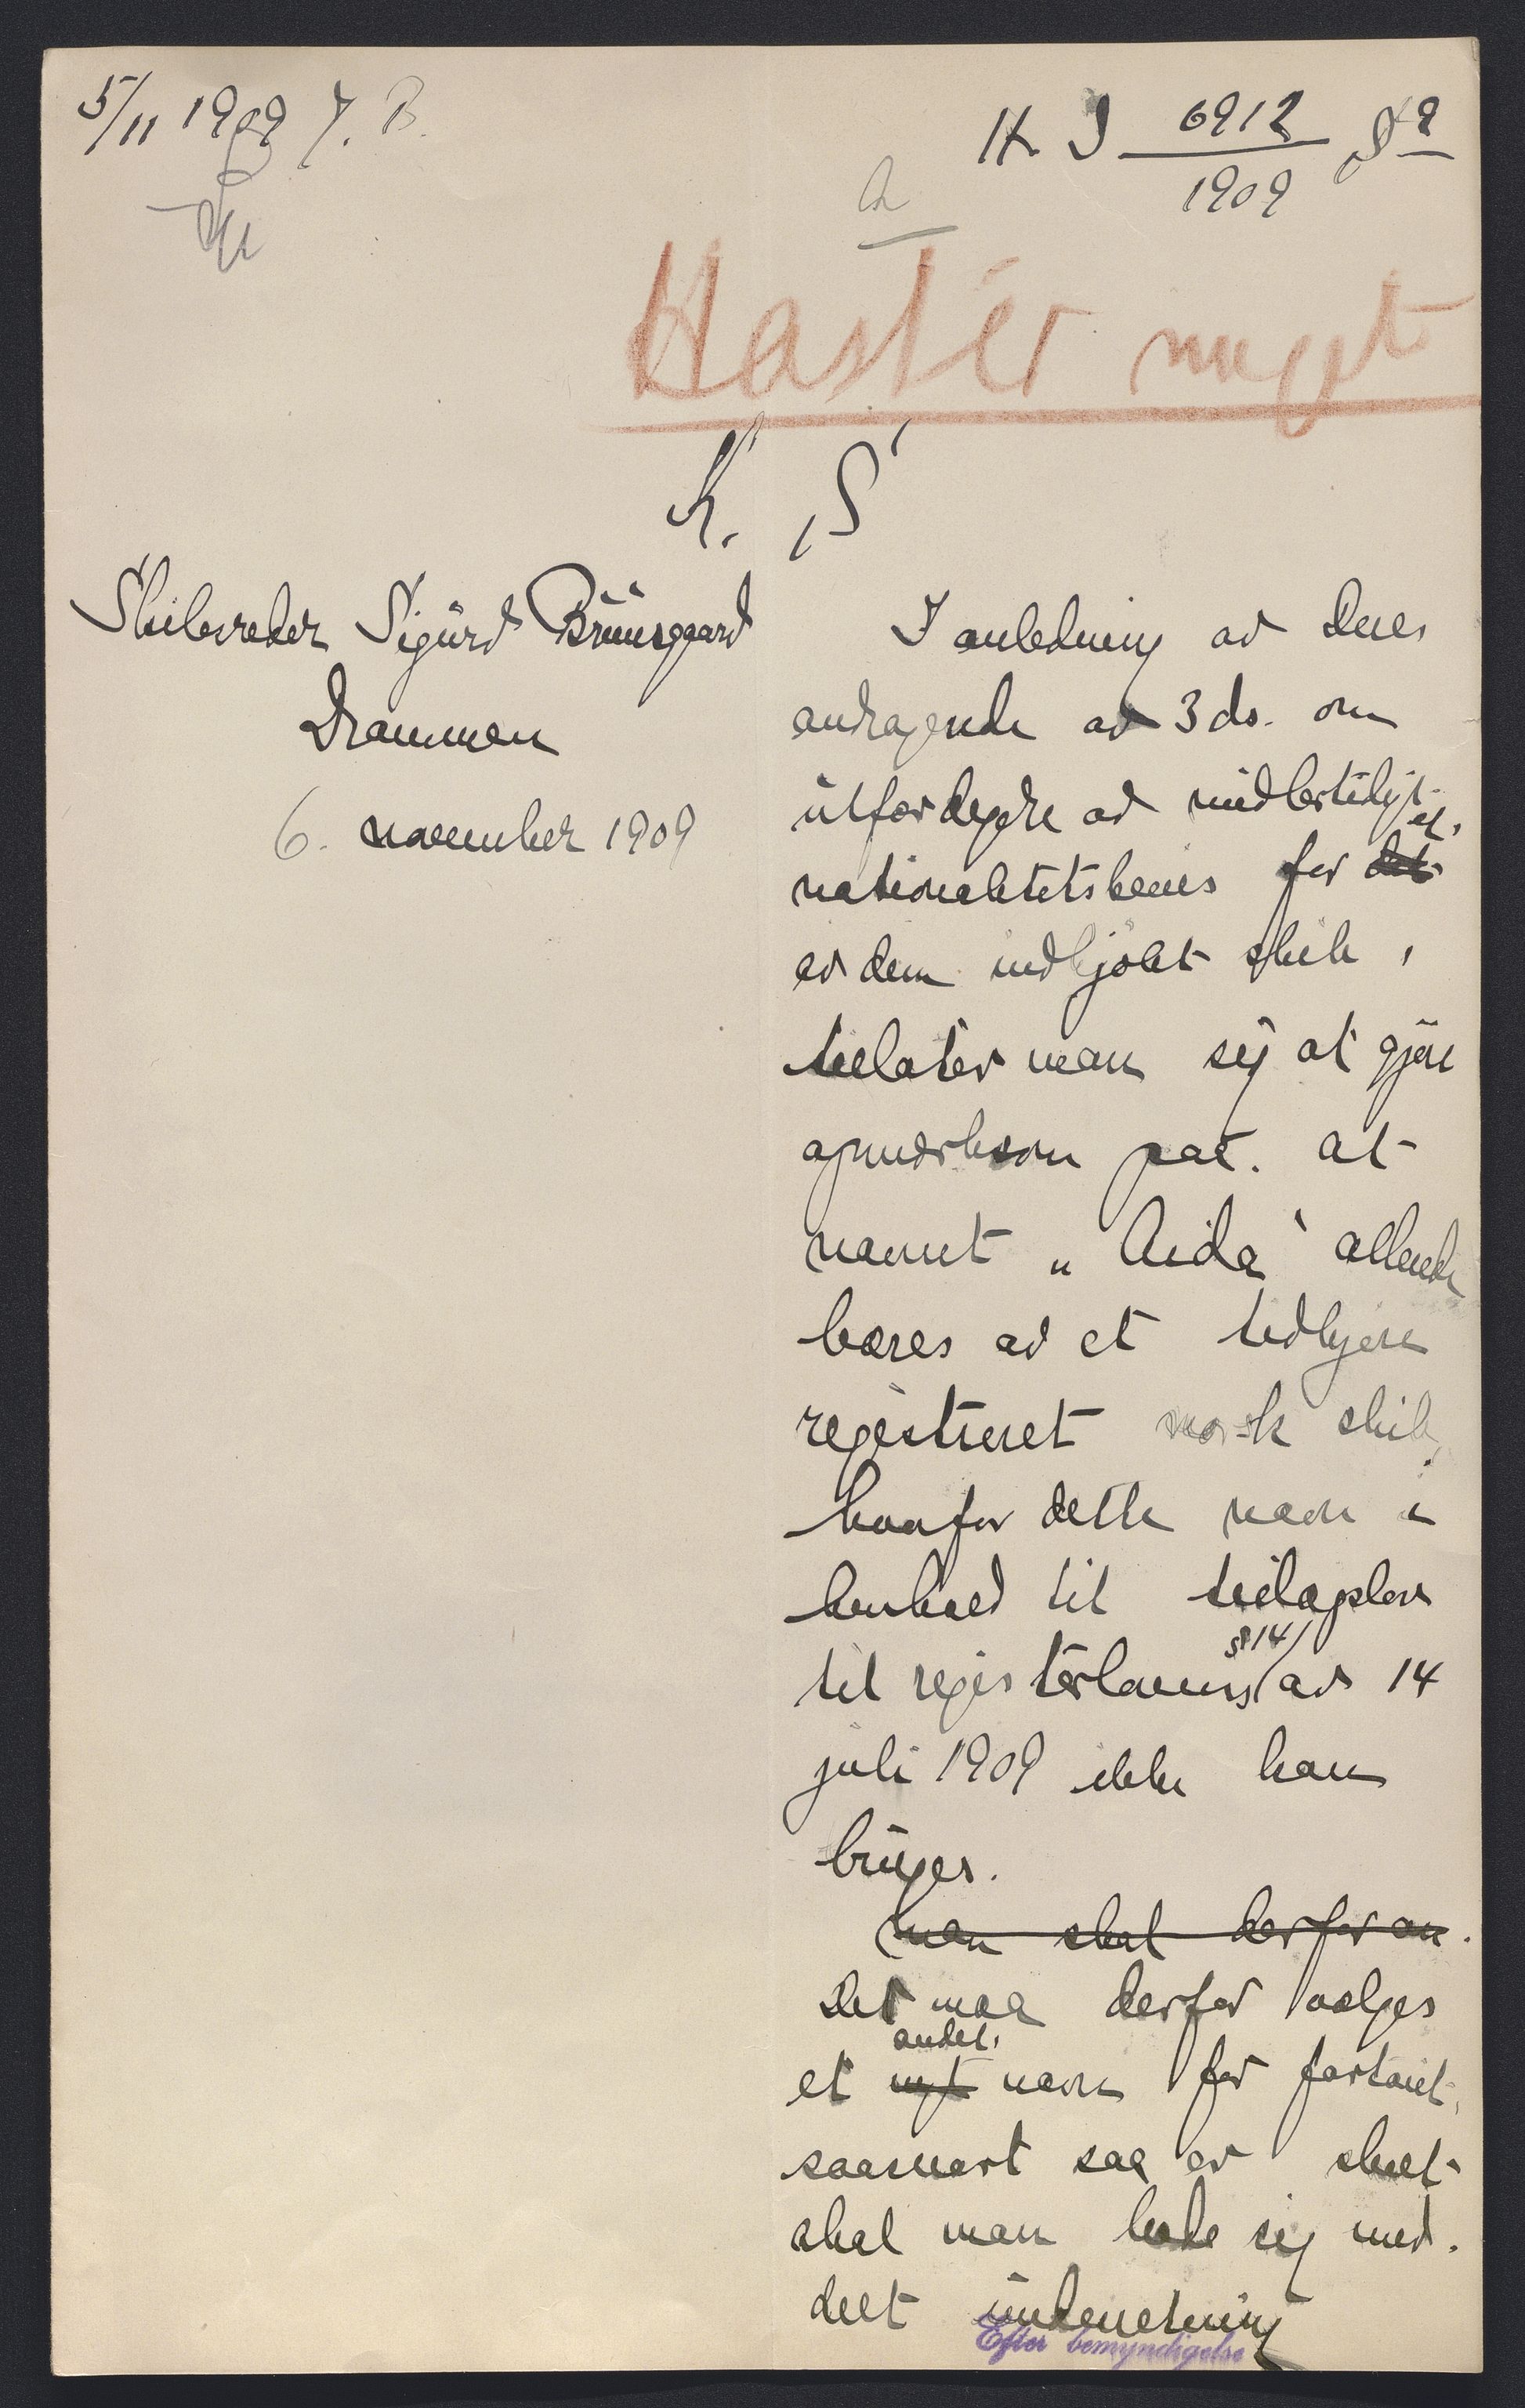 5/11 1909 J. B.
H J 6912
1909
Haster meget
K. S
Skibsreder Sigurd Bruusgaard
Drammen
6. november 1909
I anledning av Deres
andragende av 3 ds. om
utfærdigelse av midlertidigt
nationalitetsbevis for det et
av dem indkjøbt skib,
tillater man sig at gjøre
opmerksom paa at
navnet „Aida" allerede
bæres av et tidligere
registreret norsk skib,
hvorfor dette navn i
henhold til tillægslov
til registerlovens § 14 av 14
juli 1909 ikke kan
bruges.
Man skal derfor an
Det maa derfor vælges
et nyt andet navn for fartøiet,
saasnart saa er skeet
skal man bede sig med-
delt underretning
Efter bemyndigelse